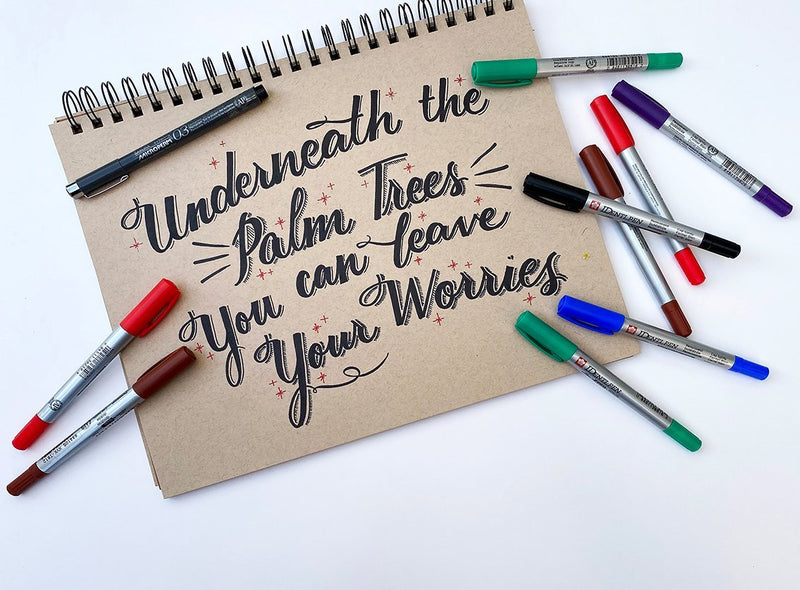 Underneath the
Palm Trees
You can leave
Your Worries
MICROPERM 03
IDENTI.PEN
IDENTI.PEN
IDENTI.PEN